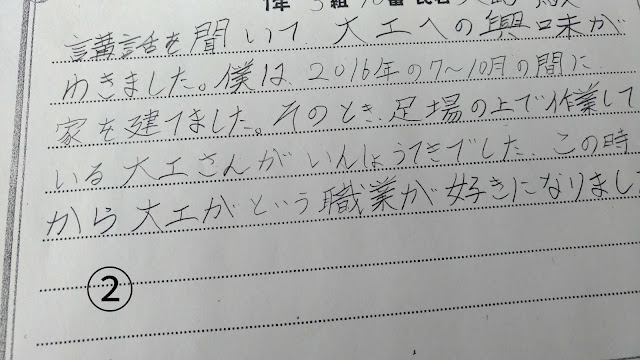 1年 組 番 氏名
講話を聞いて大工への興味が
わきました。僕は2016年の7〜10月の間に
家を建てました。そのとき足場の上で作業して
いる大工さんがいんしょうてきでした。この時
から大工がという職業が好きになりまし
②